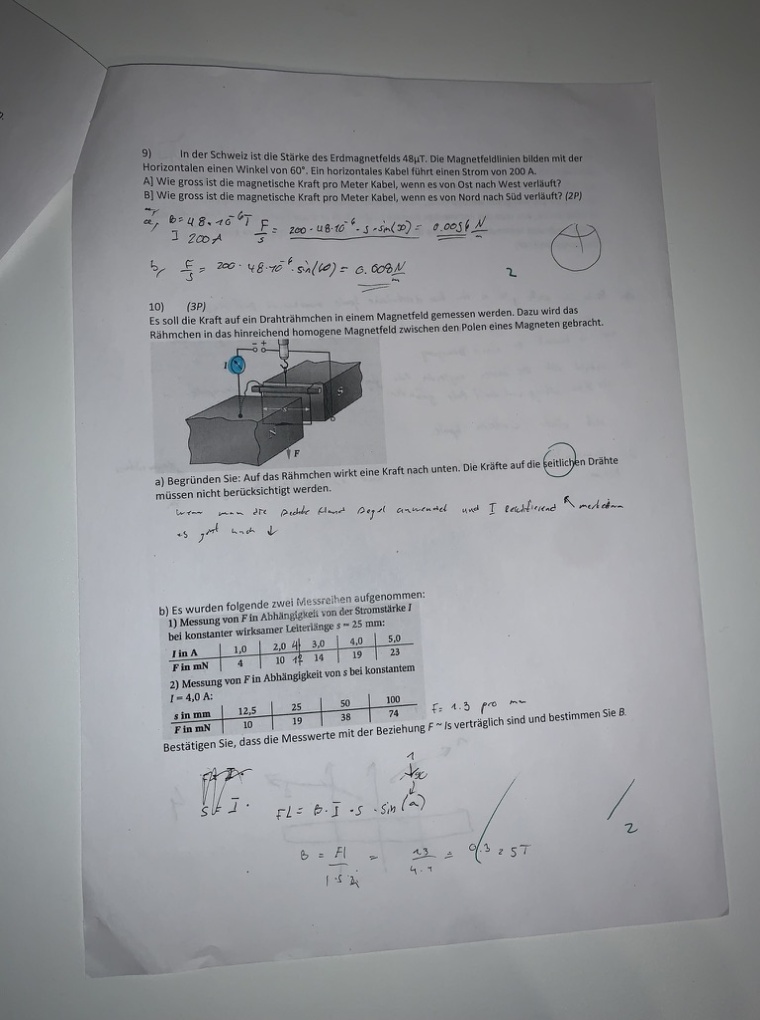 9) In der Schweiz ist die Stärke des Erdmagnetfelds 48µT. Die Magnetfeldlinien bilden mit der
Horizontalen einen Winkel von 60°. Ein horizontales Kabel führt einen Strom von 200 A.
A] Wie gross ist die magnetische Kraft pro Meter Kabel, wenn es von Ost nach West verläuft?
B] Wie gross ist die magnetische Kraft pro Meter Kabel, wenn es von Nord nach Süd verläuft? (2P)
a, B=48·10⁻⁶T F/s = 200·48·10⁻⁶·s·sin( )=
I 200A
b, F/s = 200·48·10⁻⁶·sin(60)= 0.008 N/m
2
10) (3P)
Es soll die Kraft auf ein Drahträhmchen in einem Magnetfeld gemessen werden. Dazu wird das
Rähmchen in das hinreichend homogene Magnetfeld zwischen den Polen eines Magneten gebracht.
- +
I
S
s
N
F
a) Begründen Sie: Auf das Rähmchen wirkt eine Kraft nach unten. Die Kräfte auf die seitlichen Drähte
müssen nicht berücksichtigt werden.
wenn man die rechte Hand Regel anwendet und I
es nach ↓
b) Es wurden folgende zwei Messreihen aufgenommen:
1) Messung von F in Abhängigkeit von der Stromstärke I
bei konstanter wirksamer Leiterlänge s = 25 mm:
I in A 1,0 2,0 4 3,0 4,0 5,0
F in mN 4 10 12 14 19 23
2) Messung von F in Abhängigkeit von s bei konstantem
I = 4,0 A:
s in mm 12,5 25 50 100
F in mN 10 19 38 74
F= 1.3 pro
Bestätigen Sie, dass die Messwerte mit der Beziehung F ~ Is verträglich sind und bestimmen Sie B.
1
FL = B·I·s·sin(a)
2
B = Fl =